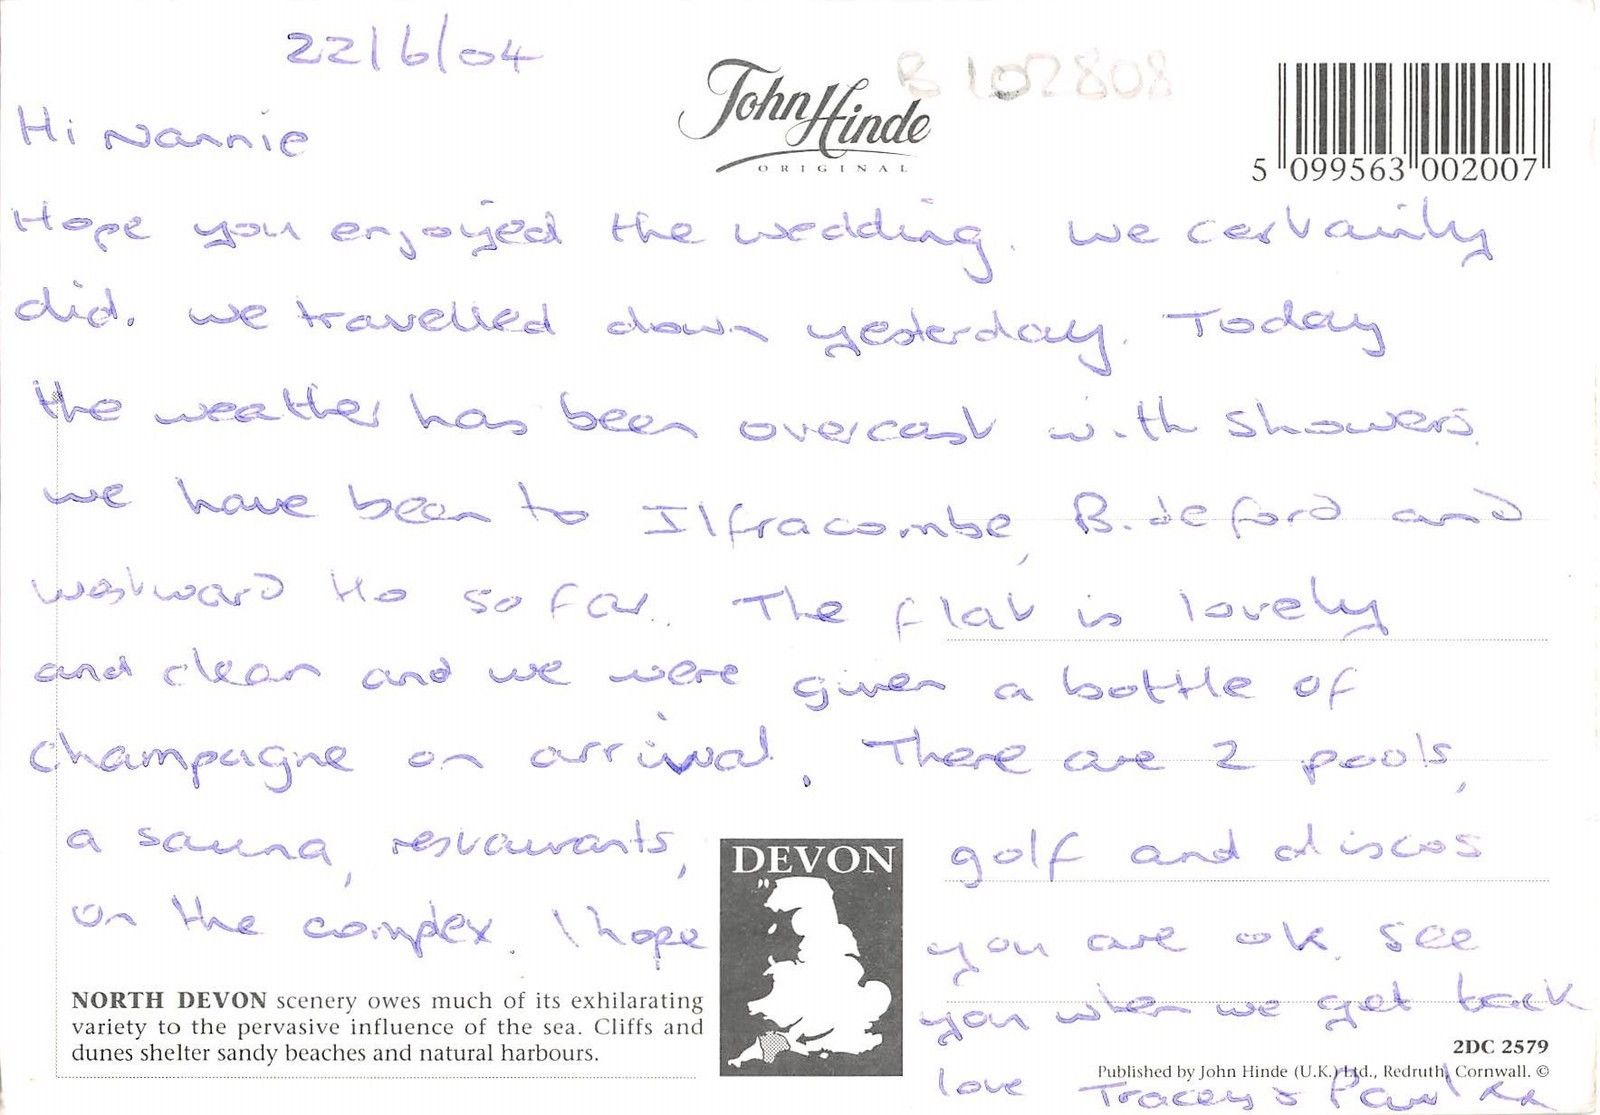 22/6/04
John Hinde
ORIGINAL
B 102808
5 099563 002007
Hi Nannie
Hope you enjoyed the wedding. We certainly
did. we travelled down yesterday. Today
the weather has been overcast with showers.
we have been to Ilfracombe, Bideford and
Westward Ho so far. The flat is lovely
and clean and we were given a bottle of
champagne on arrival. There are 2 pools,
a sauna, restaurants, golf and discos
on the complex. I hope you are ok. see
you when we get back
love Tracey & Paul xx
DEVON
NORTH DEVON scenery owes much of its exhilarating
variety to the pervasive influence of the sea. Cliffs and
dunes shelter sandy beaches and natural harbours.
2DC 2579
Published by John Hinde (U.K.) Ltd., Redruth, Cornwall. ©